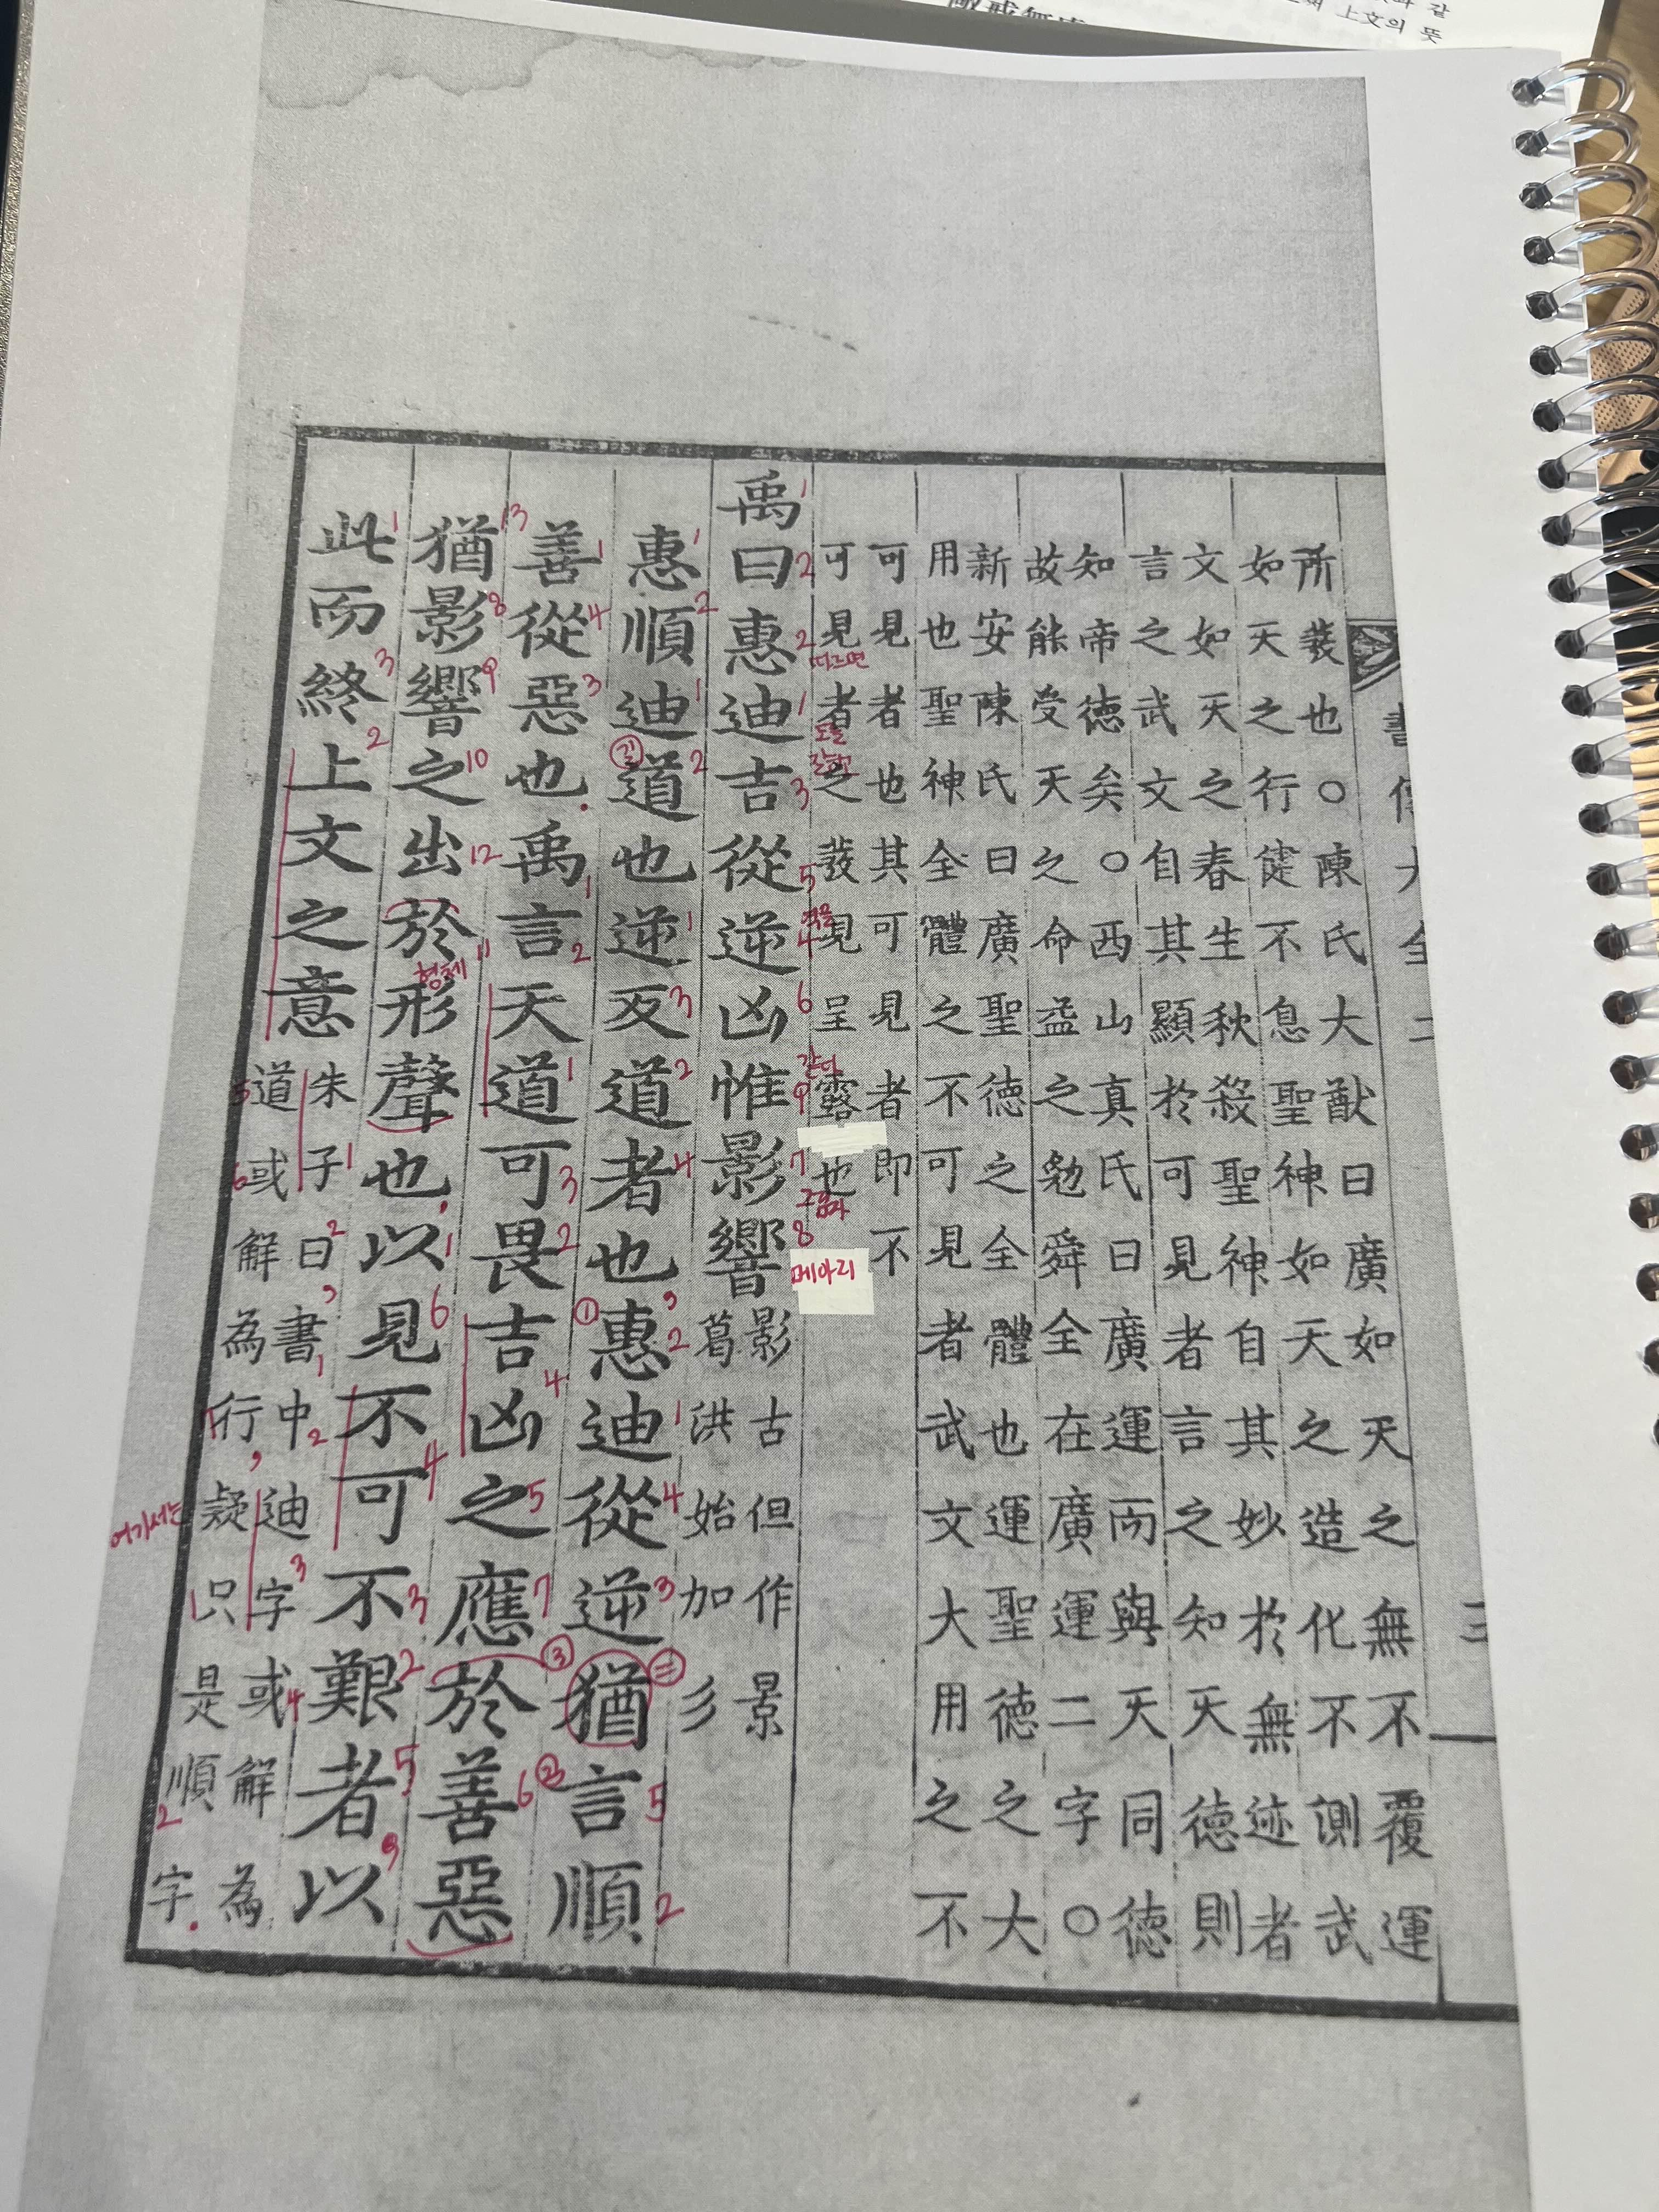 上文의 뜻
所發也○陳氏大猷曰廣如天之無不覆運
如天之行健不息聖神如天之造化不測武
文如天之春生秋殺聖神自其妙於無迹者
言之武文自其顯於可見者言之知天德則
知帝德矣○西山真氏曰廣運而與天同德
故能受天之命益之勉舜全在廣運二字○
新安陳氏曰廣聖德之全體也運聖德之大
用也聖神全體之不可見者武文大用之不
可見者也其可見者即不
可見者之發見呈露也
따르면
도를
같이
그림자
메아리
禹曰惠迪吉從逆凶惟影響
影古但作景
葛洪始加彡
惠順迪道也逆反道者也惠迪從逆猶言順
길
善從惡也禹言天道可畏吉凶之應於善惡
猶影響之出於形聲也以見不可不艱者以
형체
此而終上文之意
朱子曰書中迪字或解為
道或解為行疑只是順字
여기서는